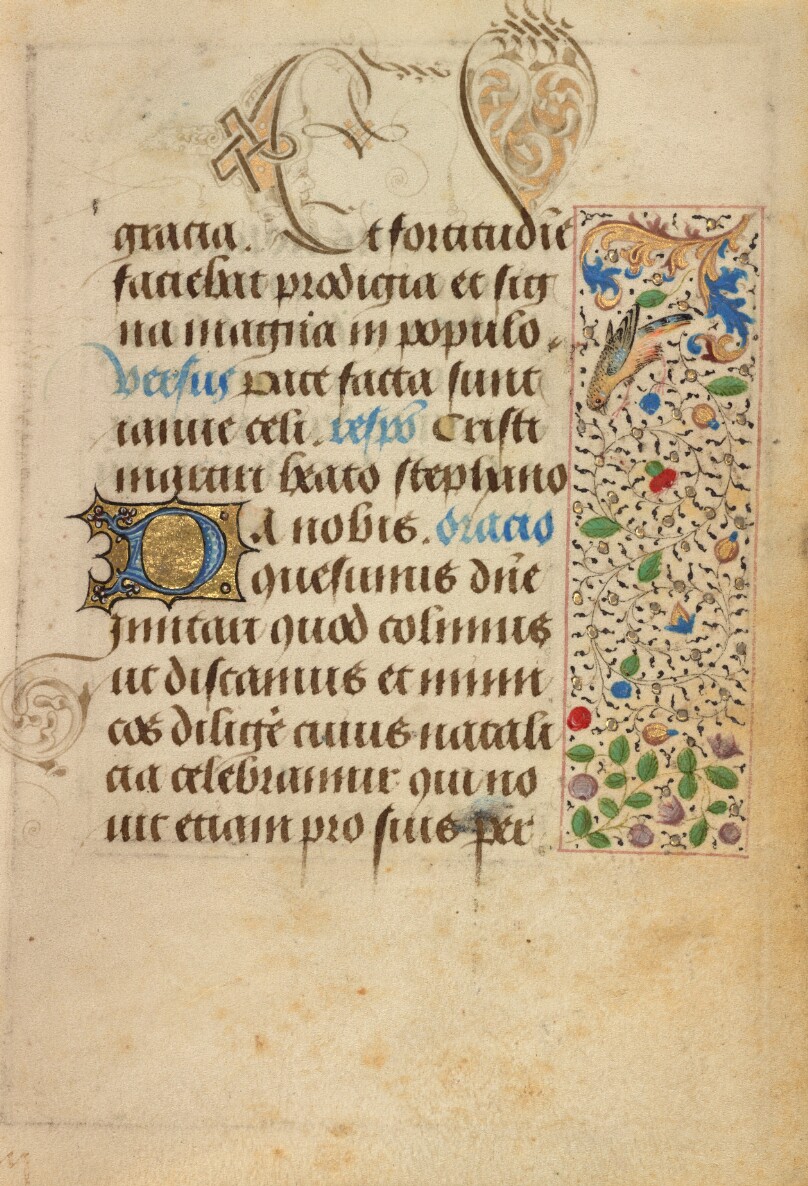 gracia. Et fortitudīe
faciebat prodigia et sig
na magna in populo.
Versus Pate facta sunt
ianue celi. respō Cristi
martiri beato stephano
Da nobis. oracio
quesumus dn̄e
imitari quod colimus
ut discamus et inimi
cos diligē cuius natali
cia celebramur qui no
uit etiam pro suis per